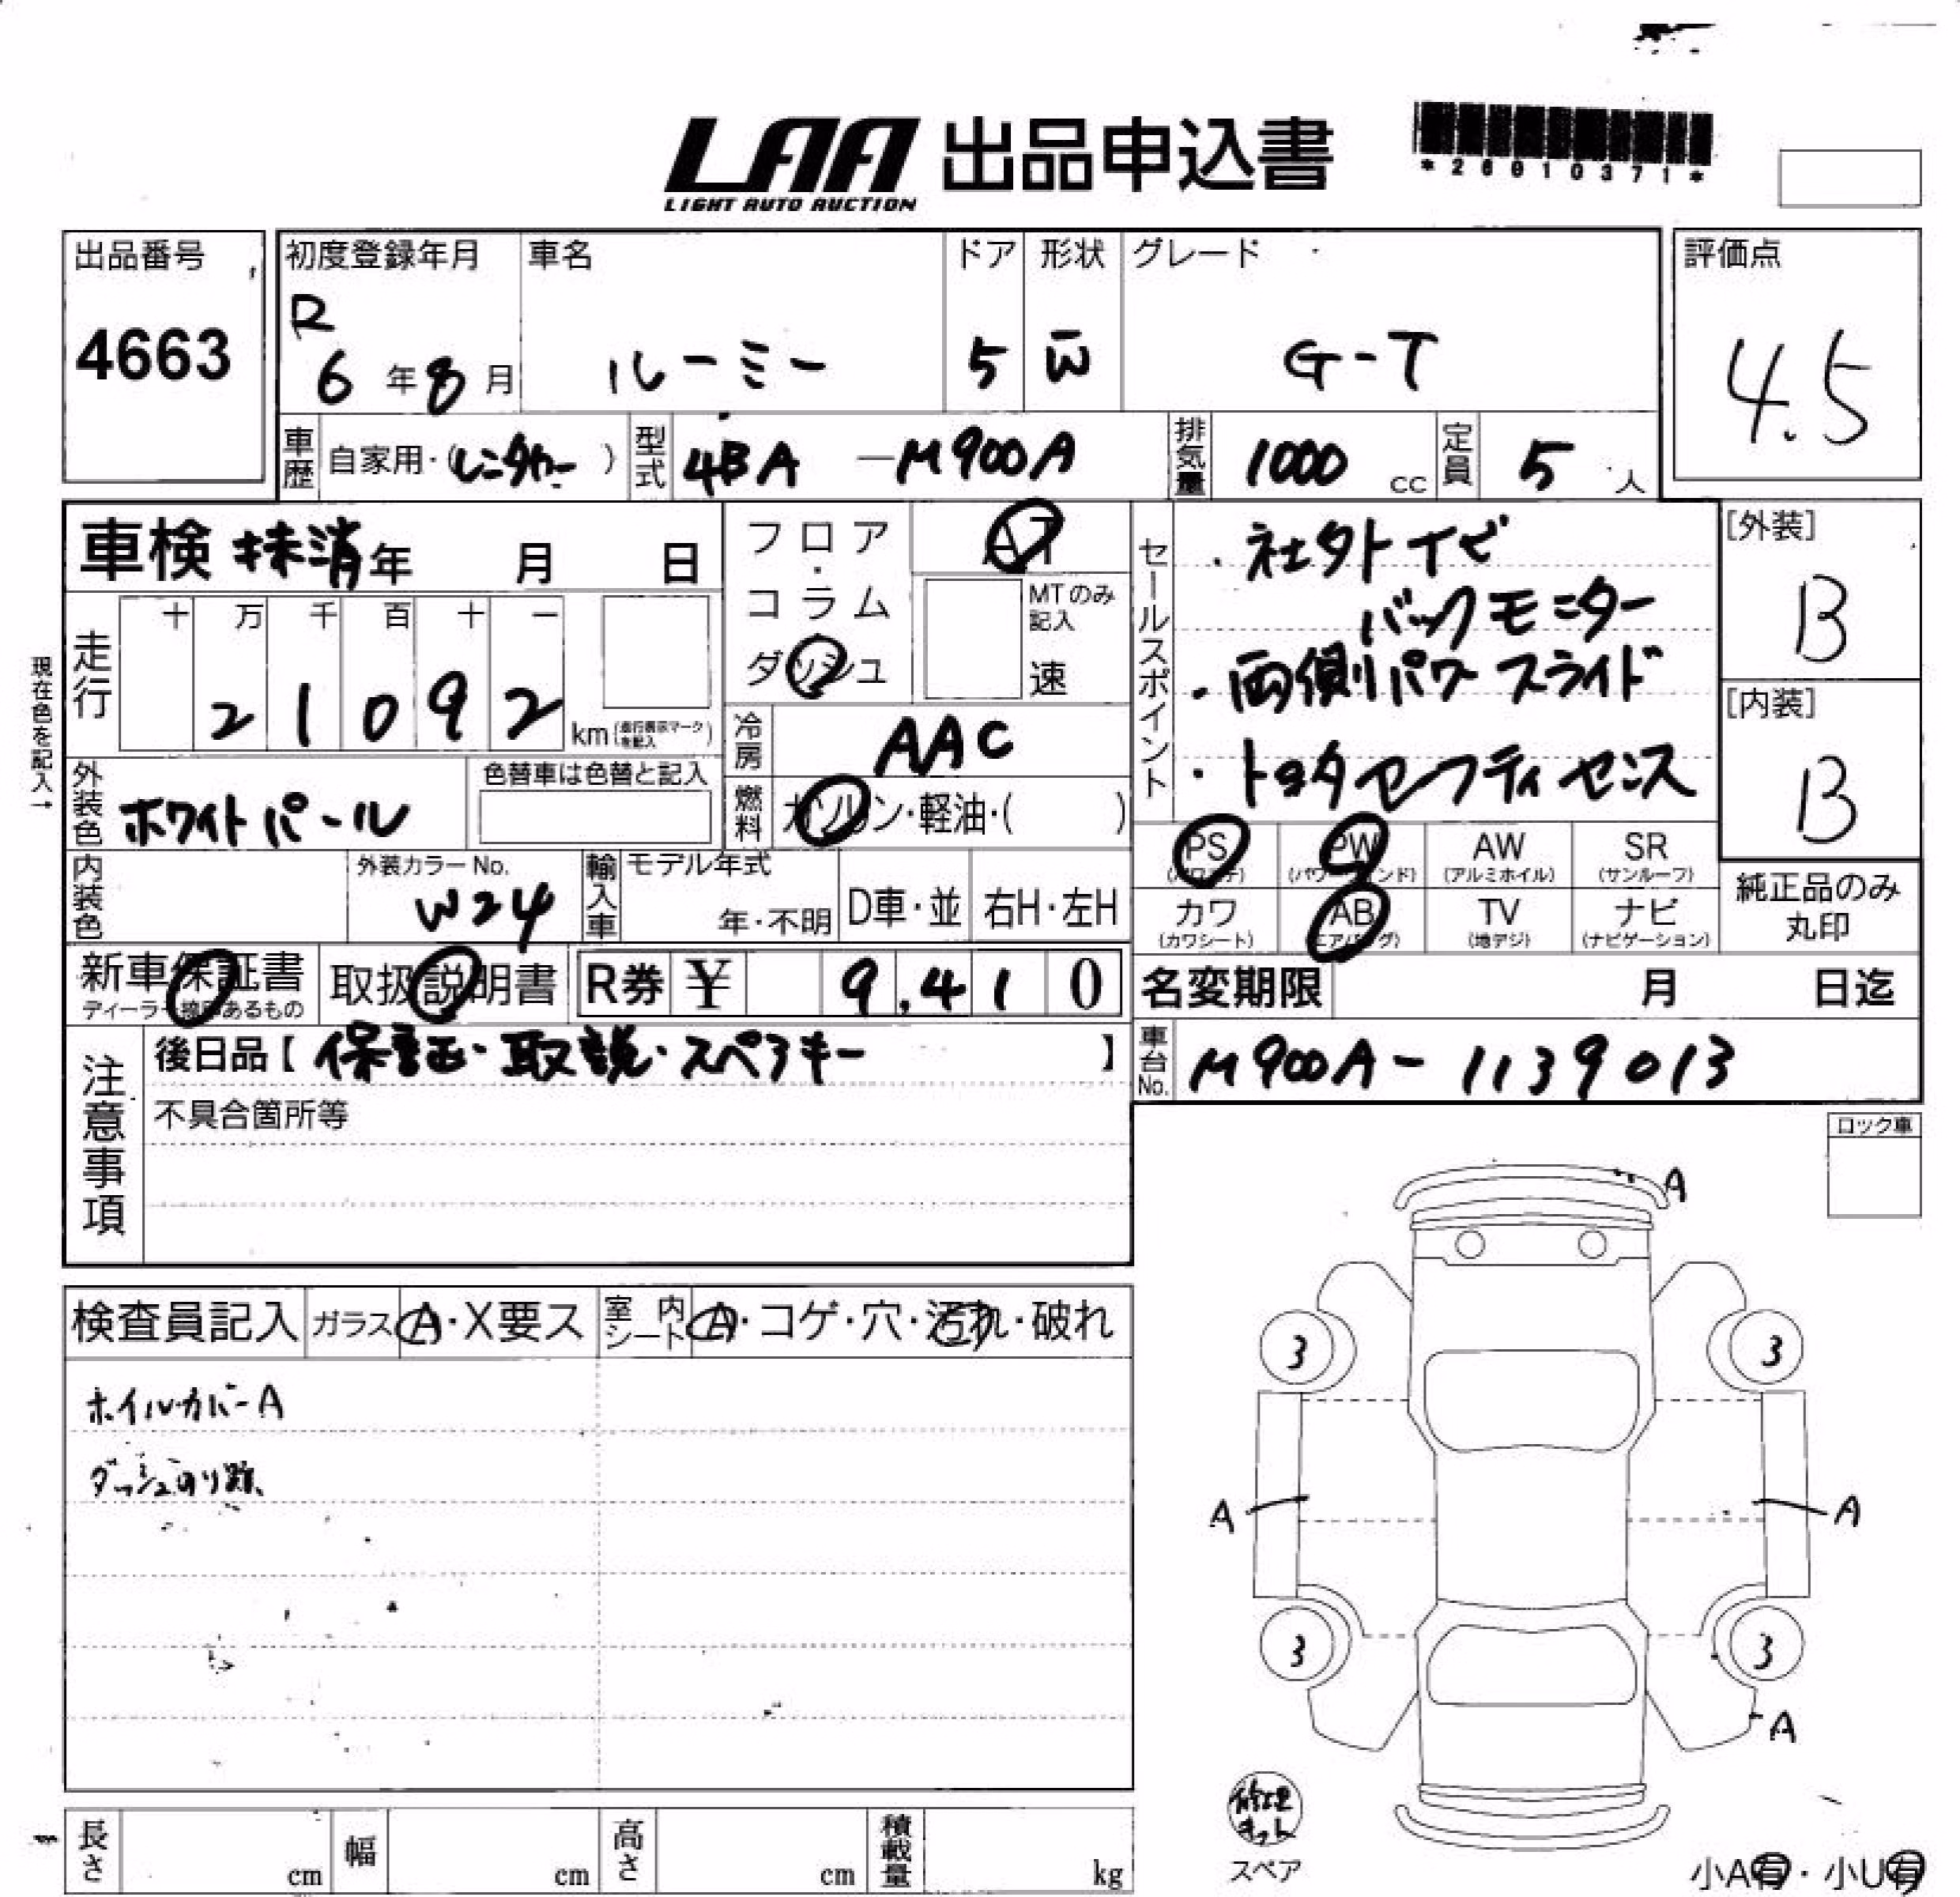 LAA 出品申込書
LIGHT AUTO AUCTION
*26010371*
出品番号
4663
初度登録年月
R
6年8月
車名
ルーミー
ドア
5
形状
W
グレード
G-T
評価点
4.5
車歴 自家用・(レンタカー)
型式 4BA-M900A
排気量 1000 cc
定員 5人
車検 抹消 年 月 日
走行
十 万 千 百 十 一
2 1 0 9 2
km (走行表示マークを記入)
現在色を記入→
外装色 ホワイトパール
色替車は色替と記入
内装色
外装カラーNo.
W24
フロア・コラム
ダッシュ
AT
MTのみ記入
速
冷房 AAC
燃料 ガソリン・軽油・( )
輸入車 モデル年式
年・不明
D車・並
右H・左H
セールスポイント
・社外ナビ
バックモニター
・両側パワースライド
・トヨタセーフティセンス
[外装]
B
[内装]
B
PS
(パワステ)
PW
(パワーウインド)
AW
(アルミホイル)
SR
(サンルーフ)
カワ
(カワシート)
AB
(エアバッグ)
TV
(地デジ)
ナビ
(ナビゲーション)
純正品のみ
丸印
新車保証書
ディーラー捺印あるもの
取扱説明書
R券 ¥ 9,410
名変期限 月 日迄
車台No. M900A-1139013
注意事項
後日品【保証・取説・スペアキー】
不具合箇所等
ロック車
検査員記入
ガラス A・X要ス
室内シート A・コゲ・穴・汚れ・破れ
ホイルカバーA
ダッシュのり跡
A
3 3
A A
3 3
A
修理キット
スペア
小A有・小U有
長さ cm
幅 cm
高さ cm
積載量 kg